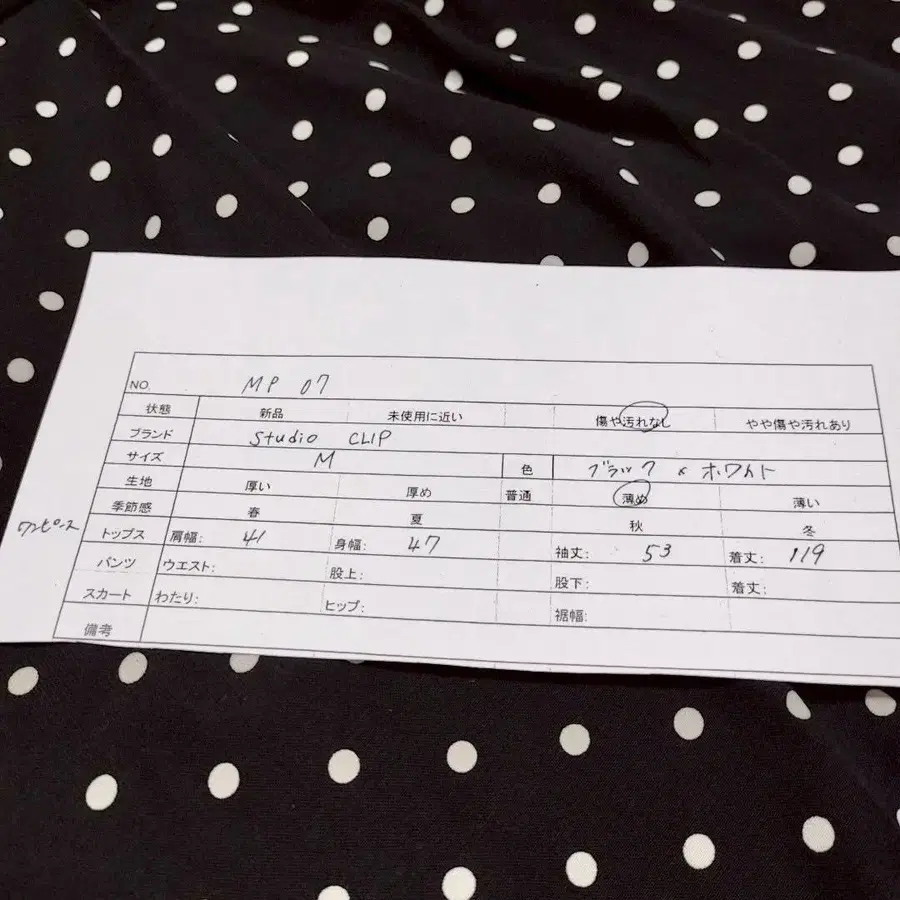 NO. MP 07
状態 新品 未使用に近い 傷や汚れなし やや傷や汚れあり
ブランド studio CLIP
サイズ M 色 ブラック × ホワイト
生地 厚い 厚め 普通 薄め 薄い
季節感 春 夏 秋 冬
ワンピース
トップス 肩幅: 41 身幅: 47 袖丈: 53 着丈: 119
パンツ ウエスト: 股上: 股下: 着丈:
スカート わたり: ヒップ: 裾幅:
備考